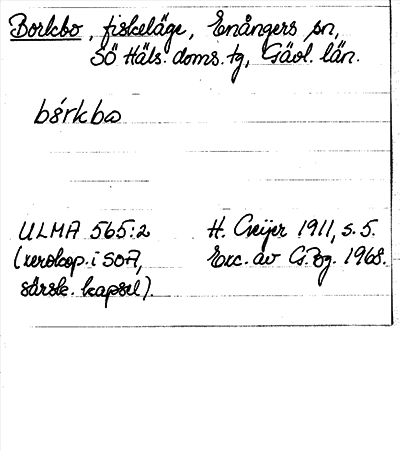 Borkbo, fiskeläge, Enångers sn,
SÖ Häls. doms. tg, Gävl. län.
bórkbo
ULMA 565:2 H. Geijer 1911, s. 5.
(xerokop. i SOA, Exc. av G. Bg. 1968.
särsk. kapsel).